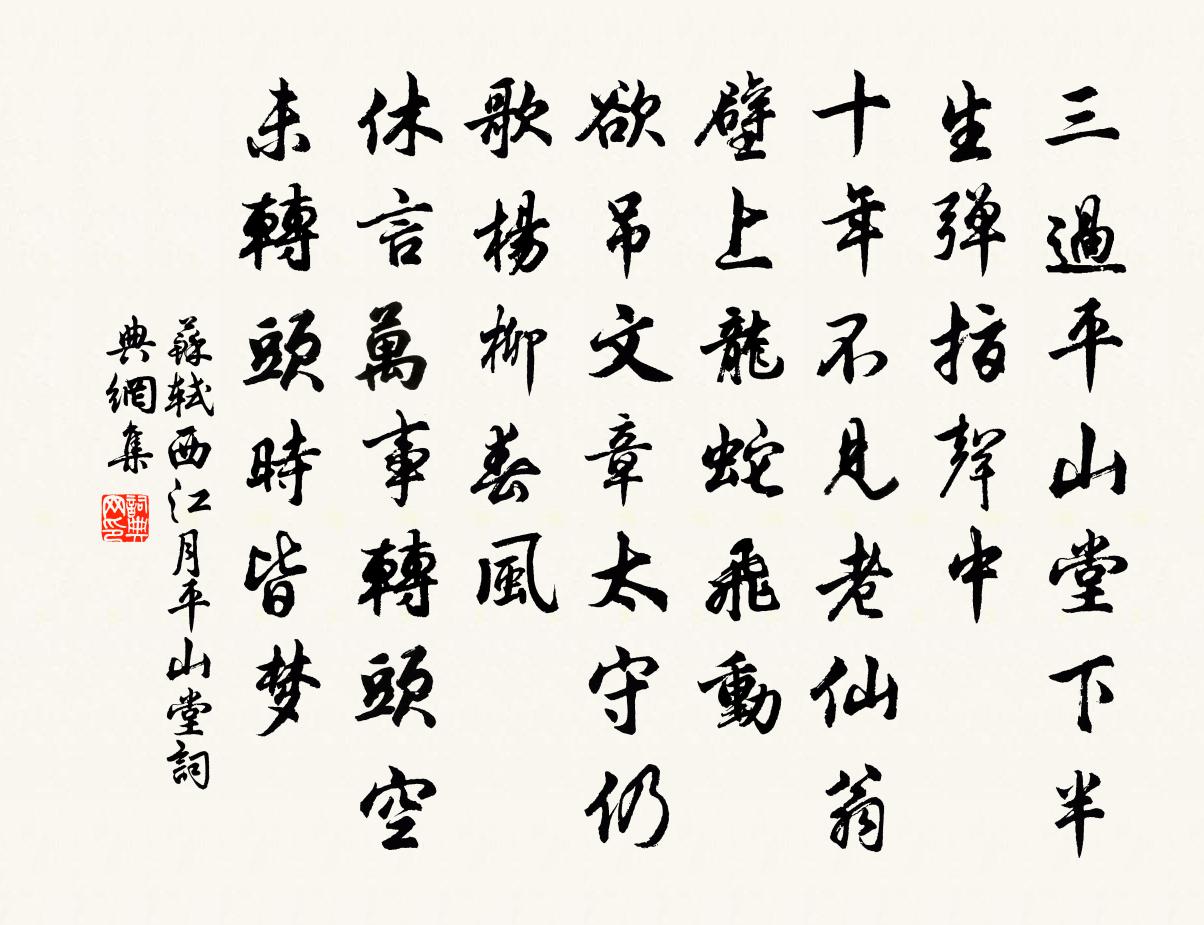 三過平山堂下半
生弹指聲中
十年不見老仙翁
壁上龍蛇飛動
欲吊文章太守仍
歌楊柳春風
休言萬事轉頭空
未轉頭時皆梦
蘇軾西江月平山堂詞
典網集
詞典
网印